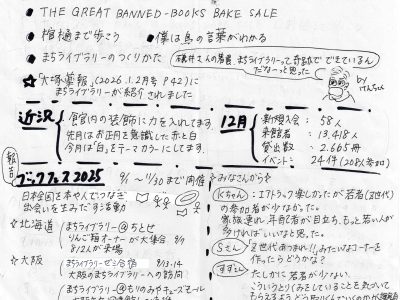 • THE GREAT BANNED-BOOKS BAKE SALE
• 棺桶まで歩こう • 僕には鳥の言葉がわかる
• まちライブラリーのつくりかた
礒井さんの著書。まちライブラリーって奇跡でできているんだなーって思った
by けんちゃん
☆「大塚薬報」(2026 1.2月号 P42)に
まちライブラリーが紹介されました
近況
館内の装飾に力を入れてます。
先月はお正月を意識した赤と白
今月は「白」をテーマカラーにしてます。
12月
新規入会: 58人
来館者: 13,418人
貸出数: 2,665冊
イベント: 24件(208人参加)
報告
ブックフェス2025 9/1〜11/30まで開催
日本全国を本や人でつなぎ
出会いを生みだす活動
☆北海道
まちライブラリー@ちとせ
りんご箱オーナーが大集合 8/9
812人が来場
☆大阪
まちライブラリーゼミ合宿 8/13-14
大阪のまちライブラリーへの訪問
まちライブラリー@もりのみやキューズモール
みなさんから
Kちゃん: エアトラック楽しかったが若者(Z世代)
の参加者が少なかった。
家族連れ、年配者が目立ち、もっと若い人が
来ればいいなと思った。
Sさん: Z世代あつまれ!!みたいなコーナーを
作ったらどうかな?
すずさん:
たしかに若者が少ない。
こういうとり